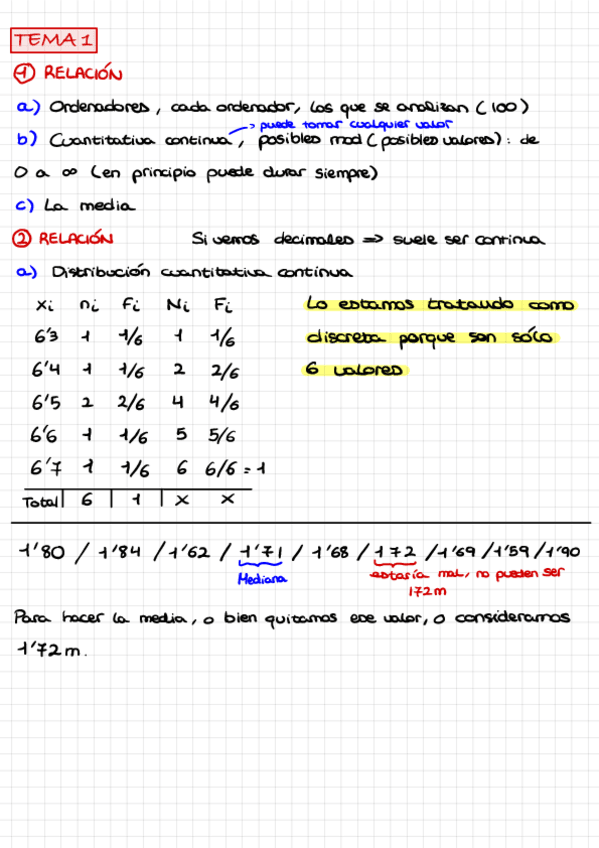 TEMA 1
① RELACIÓN
a) Ordenadores, cada ordenador, los que se analizan (100)
→ puede tomar cualquier valor
b) Cuantitativa continua, posibles mod (posibles valores): de
0 a ∞ (en principio puede durar siempre)
c) La media
② RELACIÓN Si vemos decimales => suele ser continua
a) Distribución cuantitativa continua
xi ni fi Ni Fi Lo estamos tratando como
6'3 1 1/6 1 1/6 discreta porque son sólo
6'4 1 1/6 2 2/6 6 valores
6'5 2 2/6 4 4/6
6'6 1 1/6 5 5/6
6'7 1 1/6 6 6/6 = 1
Total 6 1 x x
1'80 / 1'84 / 1'62 / 1'71 / 1'68 / 172 / 1'69 / 1'59 / 1'90
Mediana estaría mal, no pueden ser
172m
Para hacer la media, o bien quitamos ese valor, o consideramos
1'72 m.